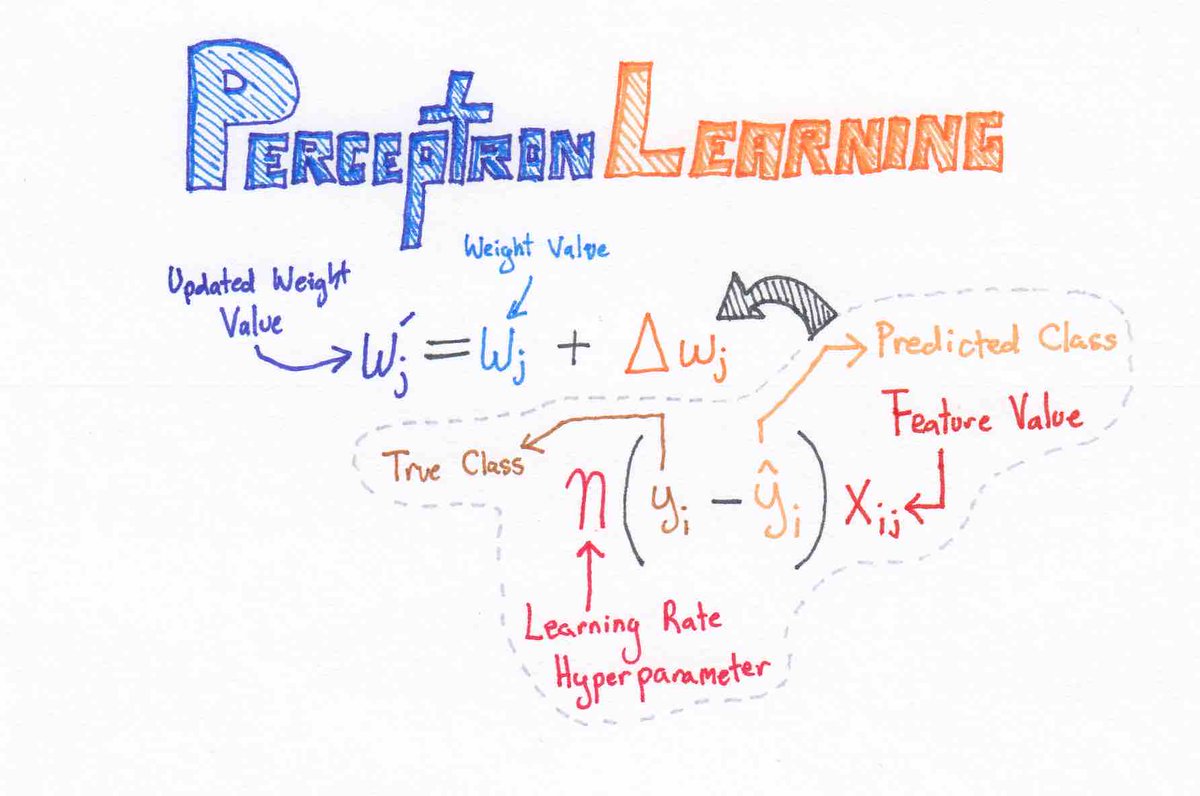 PERCEPTRON LEARNING
Weight Value
Updated Weight
Value
wⱼ′ = wⱼ + Δwⱼ
Predicted Class
Feature Value
True Class
η(yᵢ − ŷᵢ)xᵢⱼ
Learning Rate
Hyperparameter